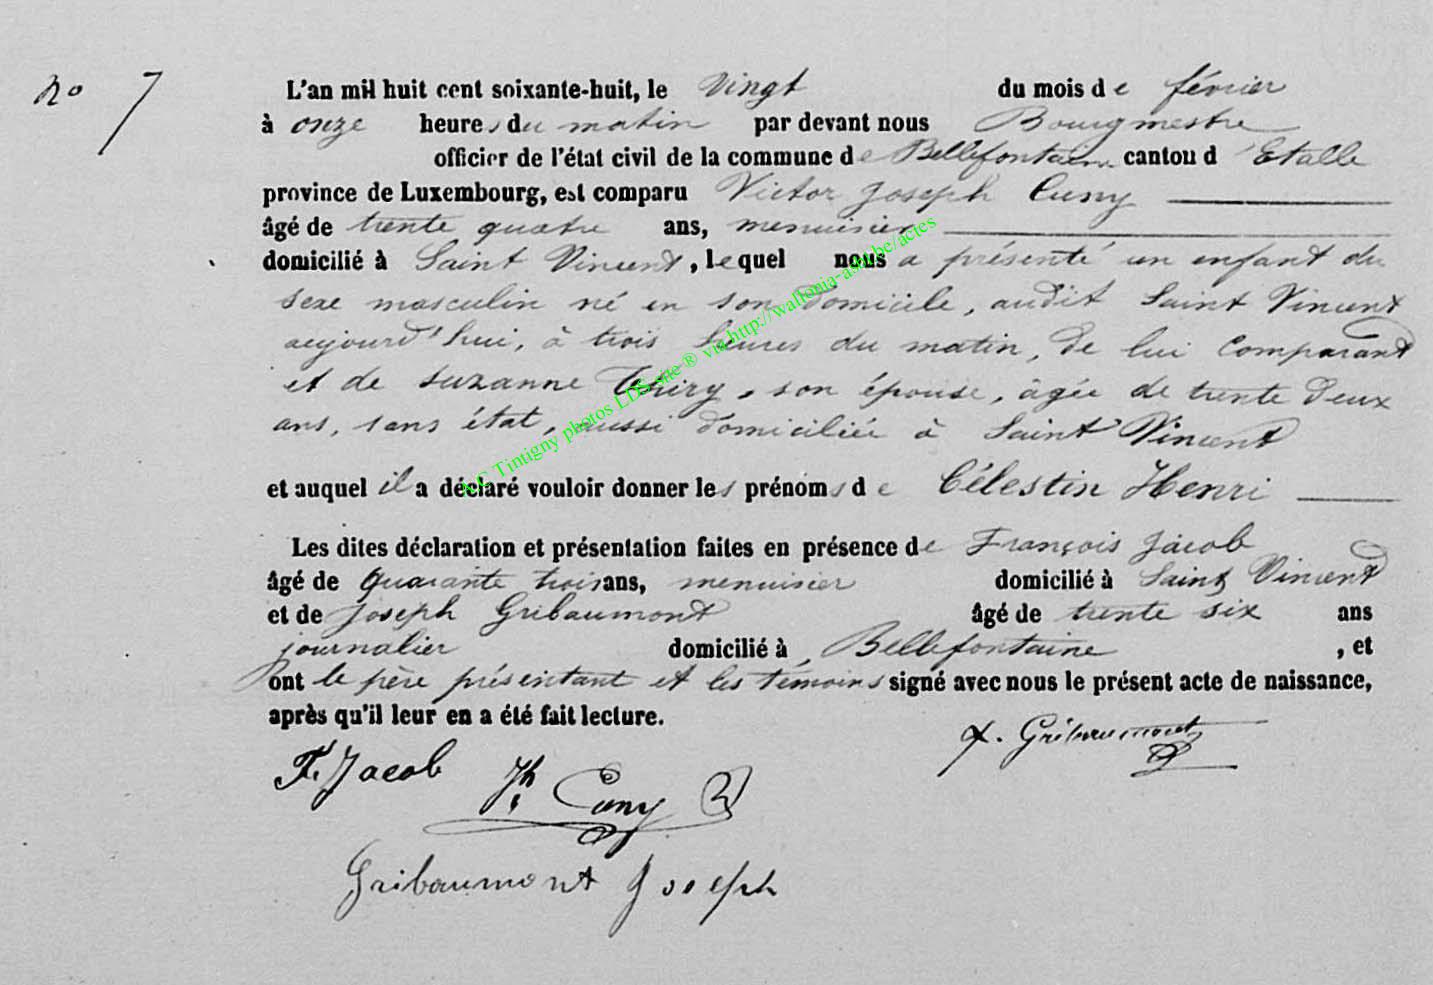 No 7
L'an mil huit cent soixante-huit, le vingt du mois de février
à onze heures du matin par devant nous Bourgmestre
officier de l'état civil de la commune de Bellefontaine canton d'Etalle
province de Luxembourg, est comparu Victor Joseph Cuny
âgé de trente quatre ans, menuisier
domicilié à Saint Vincent, lequel nous a présenté un enfant du
sexe masculin né en son domicile, audit Saint Vincent
aujourd'hui, à trois heures du matin, de lui comparant
et de Suzanne Thiry, son épouse, âgée de trente deux
ans, sans état, aussi domiciliée à Saint Vincent
et auquel il a déclaré vouloir donner les prénoms de Célestin Henri
Les dites déclaration et présentation faites en présence de François Jacob
âgé de quarante trois ans, menuisier domicilié à Saint Vincent
et de Joseph Gribaumont âgé de trente six ans
journalier domicilié à Bellefontaine, et
ont le père présentant et les témoins signé avec nous le présent acte de naissance,
après qu'il leur en a été fait lecture.
F. Jacob Jh Cuny Gribaumont
Gribaumont Joseph
A.C Tintigny photos LDS site ® via http://wallonia-asbl.be/actes